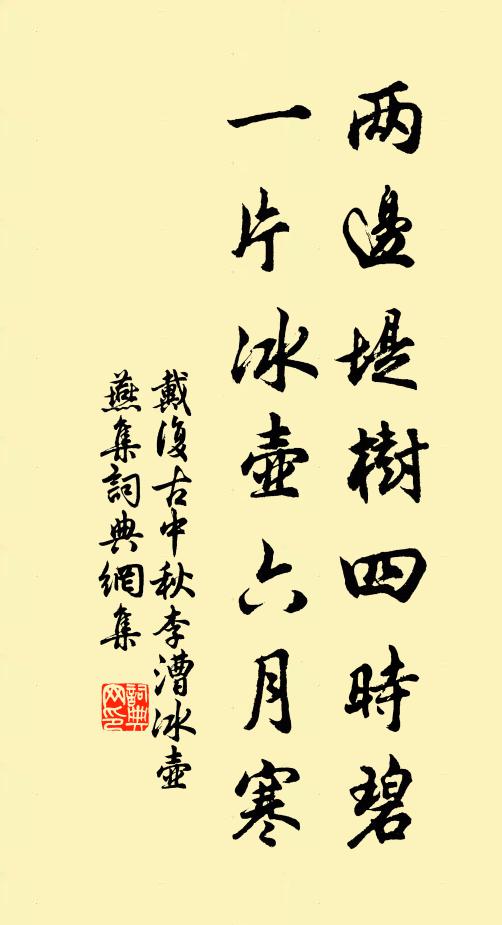 两邊堤樹四時碧
一片冰壺六月寒
戴復古中秋李漕冰壺
燕集詞典網集
詞典
网印